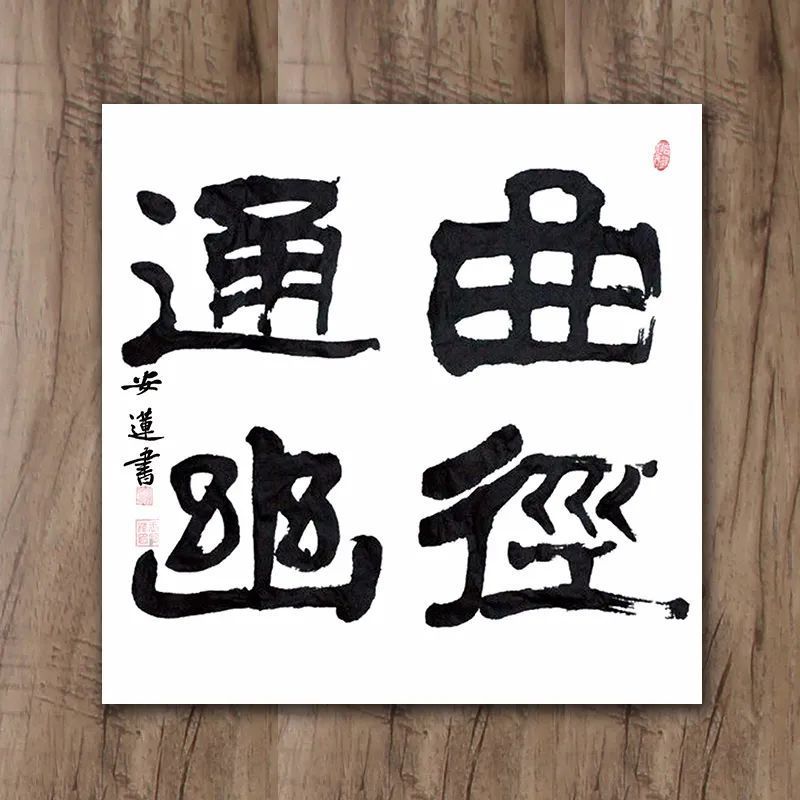 曲徑
通幽
安蓮書